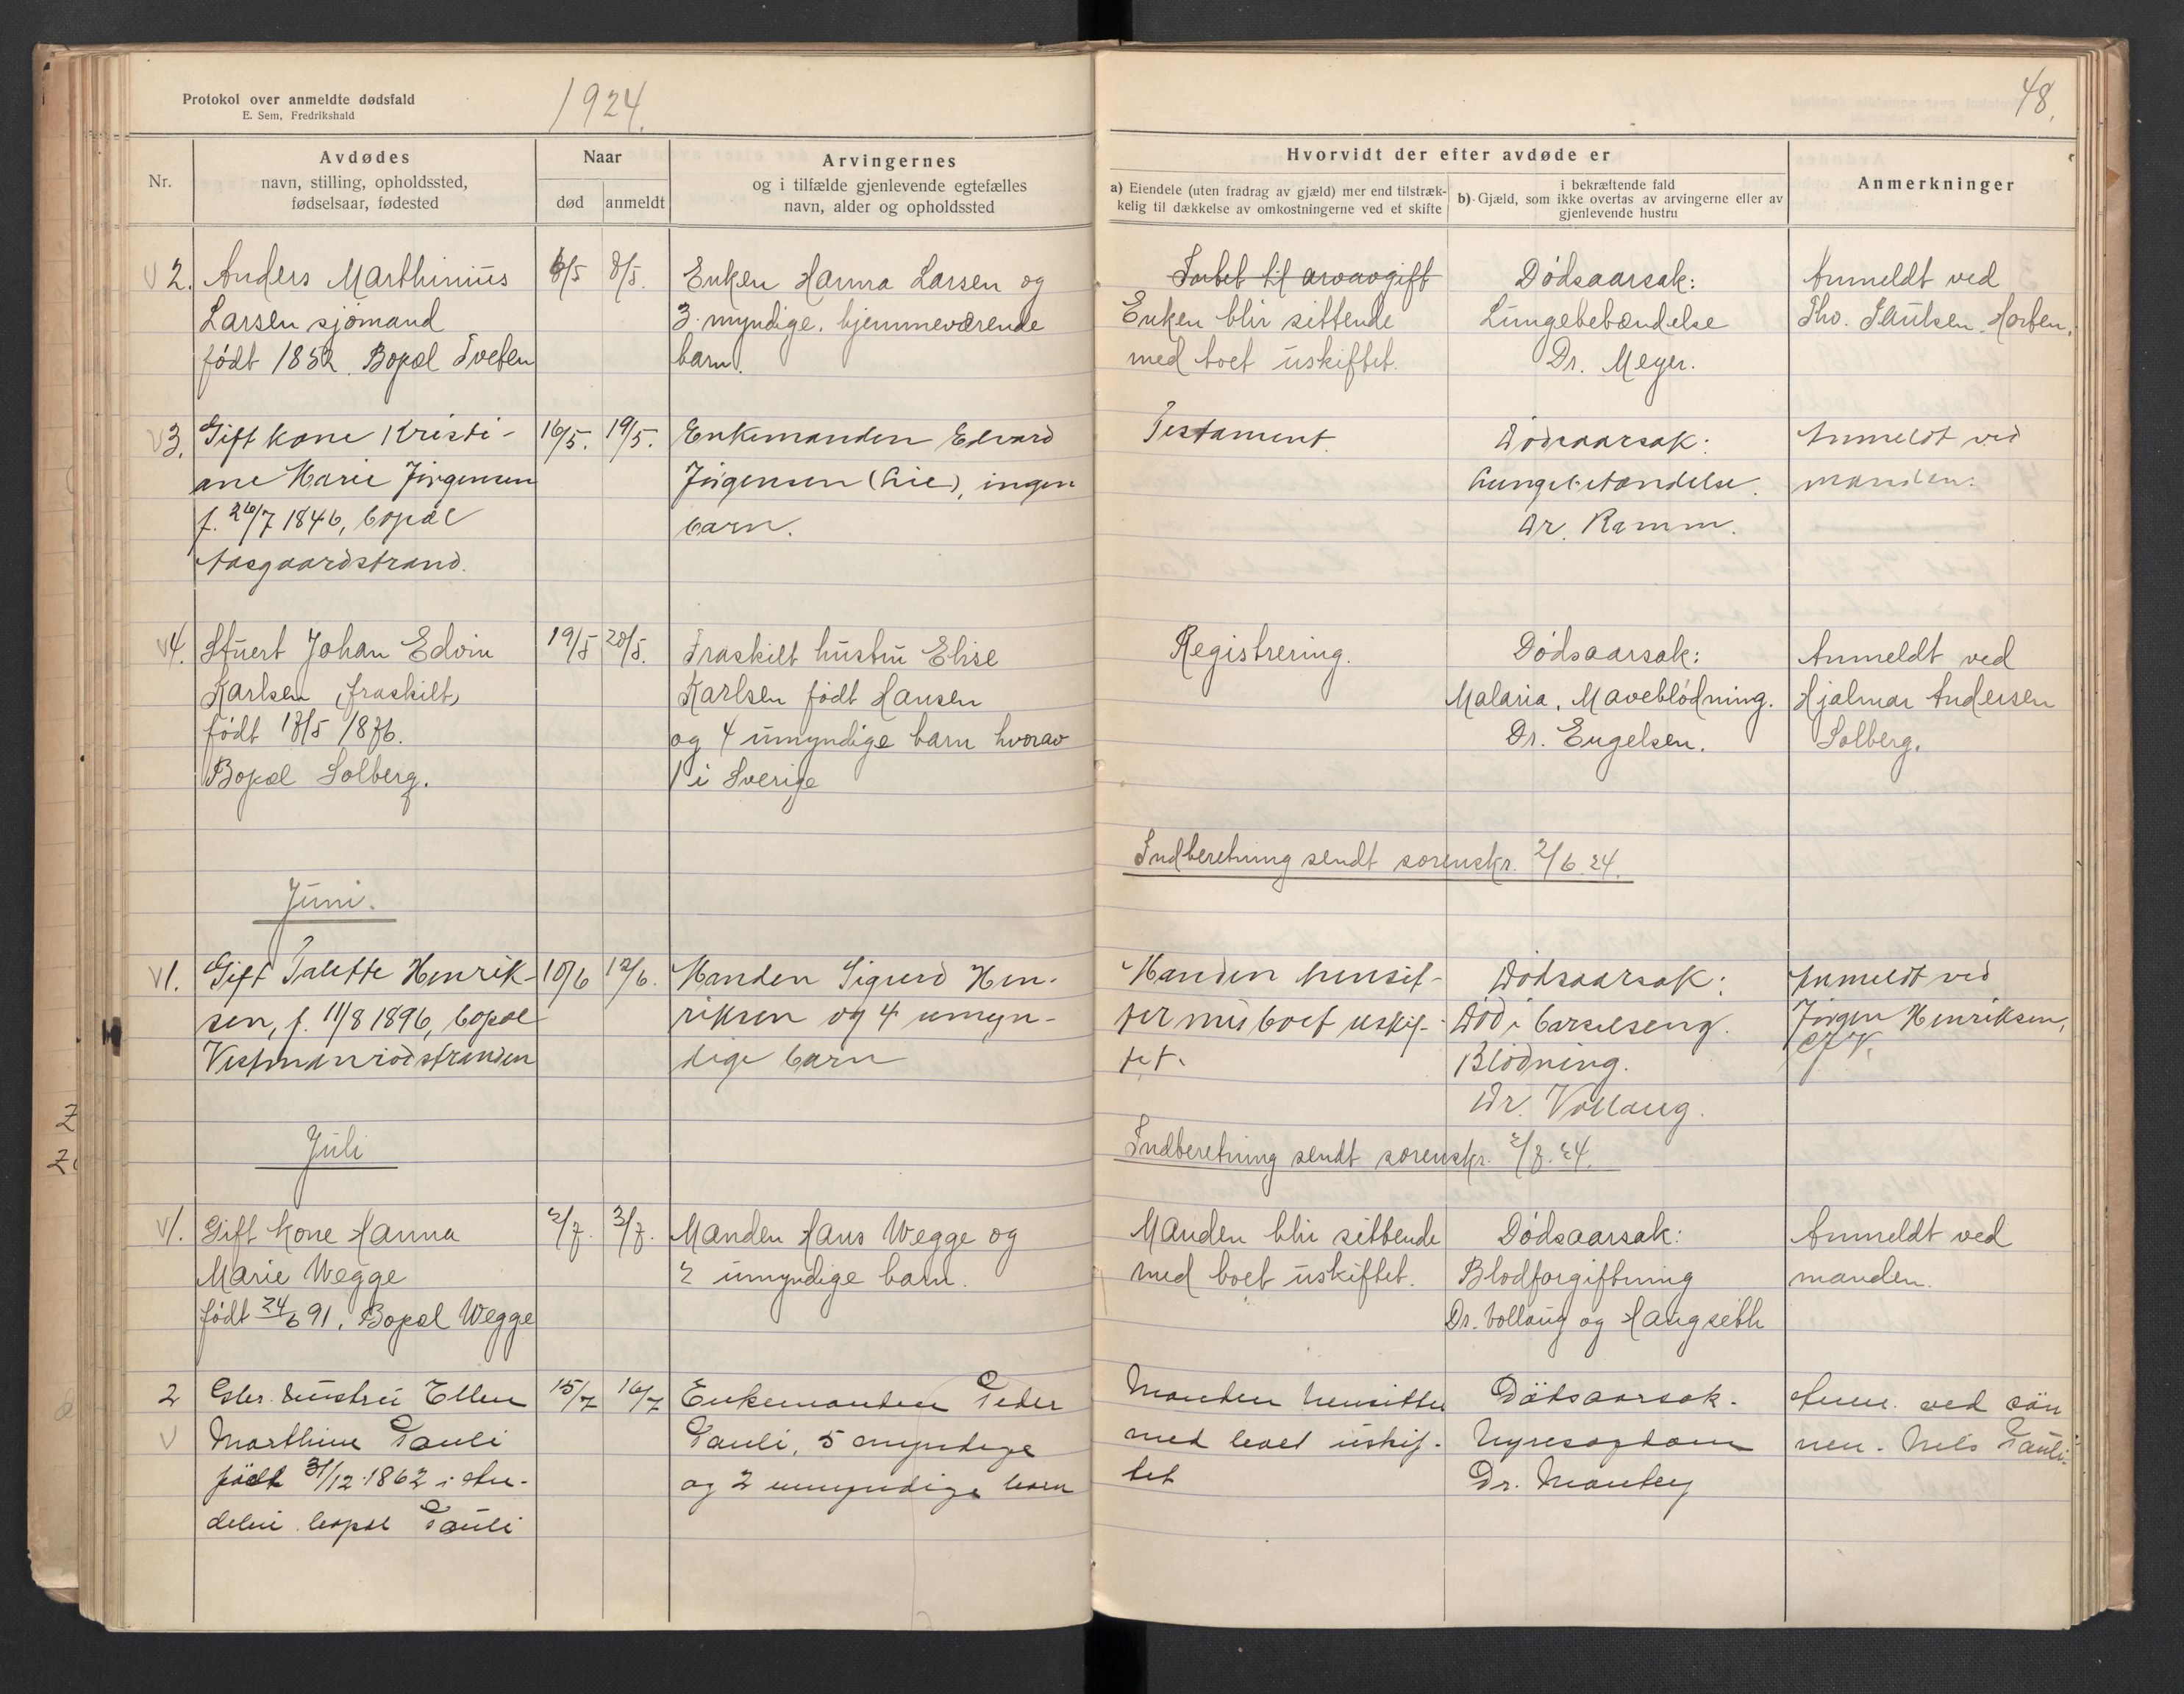 Protokol over anmeldte dødsfald
E. Sem, Fredrikshald
1924.
Nr.
Avdødes
navn, stilling, opholdssted,
fødselsaar, fødested
Naar
død
anmeldt
Arvingernes
og i tilfælde gjenlevende egtefælles
navn, alder og opholdssted
48.
Hvorvidt der efter avdøde er
a) Eiendele (uten fradrag av gjæld) mer end tilstræk-
kelig til dækkelse av omkostningerne ved et skifte
i bekræftende fald
b) Gjæld, som ikke overtas av arvingerne eller av
gjenlevende hustru
Anmerkninger
V 2. Anders Marthinius
Larsen sjømand
født 1852. Bopæl Tveten
6/5
8/5.
Enken Hanna Larsen og
3 myndige, hjemmeværende
barn.
Intet til arvavgift
Enken blir sittende
med boet uskiftet.
Dødsaarsak:
Lungebebændelse
Dr. Meyer.
Anmeldt ved
Tho. Paulsen, Horten.
V 3. Gift kone Kristi-
ane Marie Jørgensen
f. 26/7 1846, bopæl
Aasgaardstrand.
16/5.
19/5.
Enkemanden Edvard
Jørgensen (Lie), ingen
barn.
Testament.
Dødsaarsak:
Lungebetændelse.
Dr. Ramm.
Anmeldt ved
manden.
V 4. Stuert Johan Edvin
Karlsen (fraskilt)
født 18/5 1876.
Bopæl Solberg.
19/5
20/5.
Fraskilt hustru Elise
Karlsen født Hansen
og 4 umyndige barn hvorav
1 i Sverige
Registrering.
Dødsaarsak:
Malaria, Maveblødning.
Dr. Engelsen.
Anmeldt ved
Hjalmar Andersen
Solberg.
Indberetning sendt sorenskr. 2/6 24.
Juni.
V 1. Gift Talette Henrik-
sen, f. 11/8 1896, bopæl
Vestmanrødstranden
10/6
12/6.
Manden Sigurd Hen-
riksen og 4 umyn-
dige barn
Manden hensit-
ter med boet uskif-
tet.
Dødsaarsak:
Død i barselseng.
Blødning.
Dr. Vollaug.
Anmeldt ved
Jørgen Henriksen,
Indberetning sendt sorenskr. 2/7. 24.
Juli
V 1. Gift kone Hanna
Marie Wegge
født 24/6 91, Bopæl Wegge
2/7.
3/7.
Manden Hans Wegge og
2 umyndige barn.
Manden blir sittende
med boet uskiftet.
Dødsaarsak:
Blodforgiftning
Dr. Vollaug og Haugseth
Anmeldt ved
manden.
2 V hustru Ellen
Marthine Pauli
født 31/12 1862 i An-
debu. bopæl Pauli
15/7
16/7
Enkemanden Peder
Pauli, 5 myndige
og 2 umyndige barn
Manden hensitter
med boet uskif-
tet
Dødsaarsak.
Nyresygdom
Dr. Manthey
Anm. ved søn
nen. Nils Pauli.